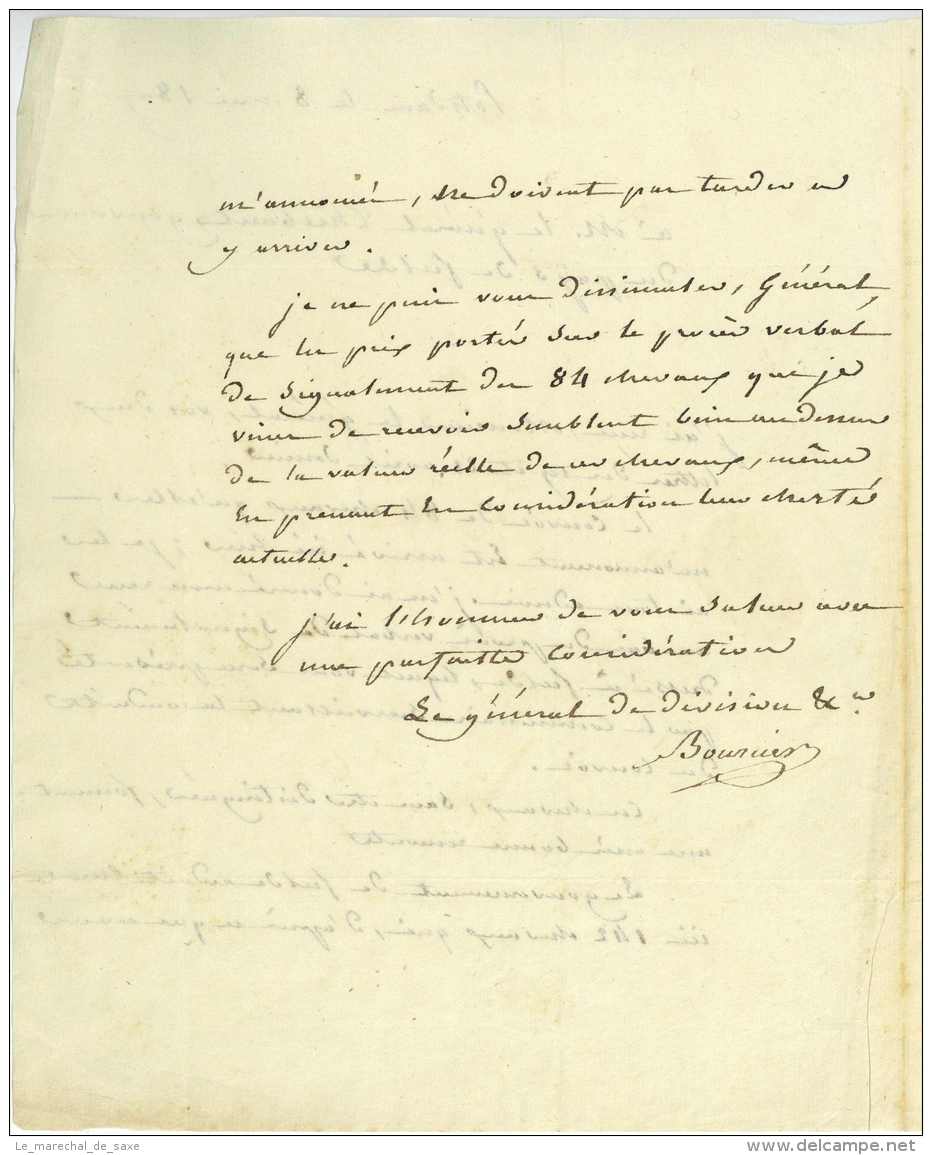 m'annoncé, ne doivent pas tarder à
y arriver.
je ne puis vous dissimuler, Général,
que les prix portés sur le procès verbal
de signalement des 84 chevaux que je
viens de recevoir semblent bien au dessus
de la valeur réelle de ces chevaux, même
en prenant en considération leur cherté
actuelle.
j'ai l'honneur de vous saluer avec
une parfaite considération
Le général de division &a.
Bourcier
Le_marechal_de_saxe
www.delcampe.net